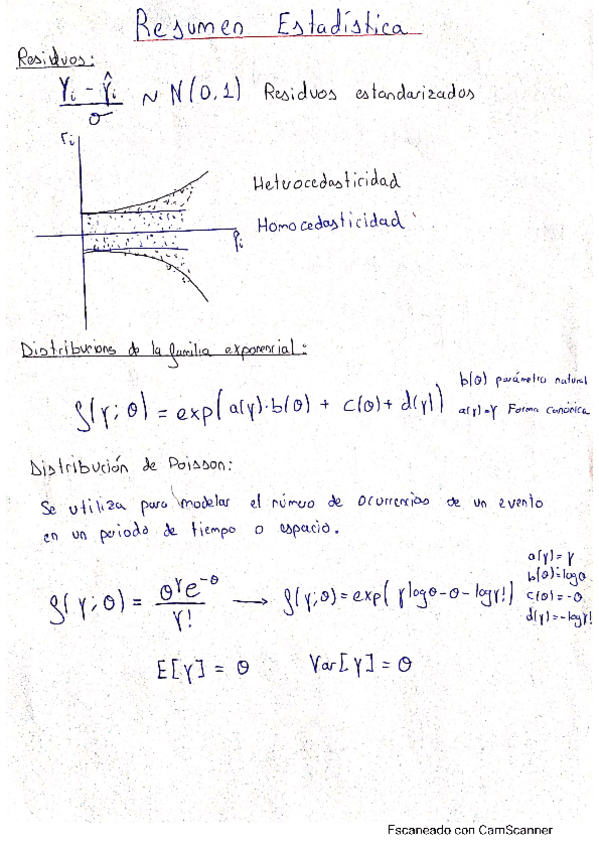 Resumen Estadística
Residuos:
Yi - Ŷi / σ ~ N(0,1) Residuos estandarizados
ri
Heterocedasticidad
Homocedasticidad
ŷi
Distribucions de la familia exponencial:
f(y;θ) = exp(a(y)·b(θ) + c(θ) + d(y))
b(θ) parámetro natural
a(y)=y Forma canónica
Distribución de Poisson:
Se utiliza para modelar el número de ocurrencias de un evento
en un periodo de tiempo o espacio.
f(y;θ) = θ^y e^-θ / y! → f(y;θ) = exp(y logθ - θ - log y!)
a(y)=y
b(θ)=logθ
c(θ)=-θ
d(y)=-log y!
E[Y] = θ Var[Y] = θ
Escaneado con CamScanner